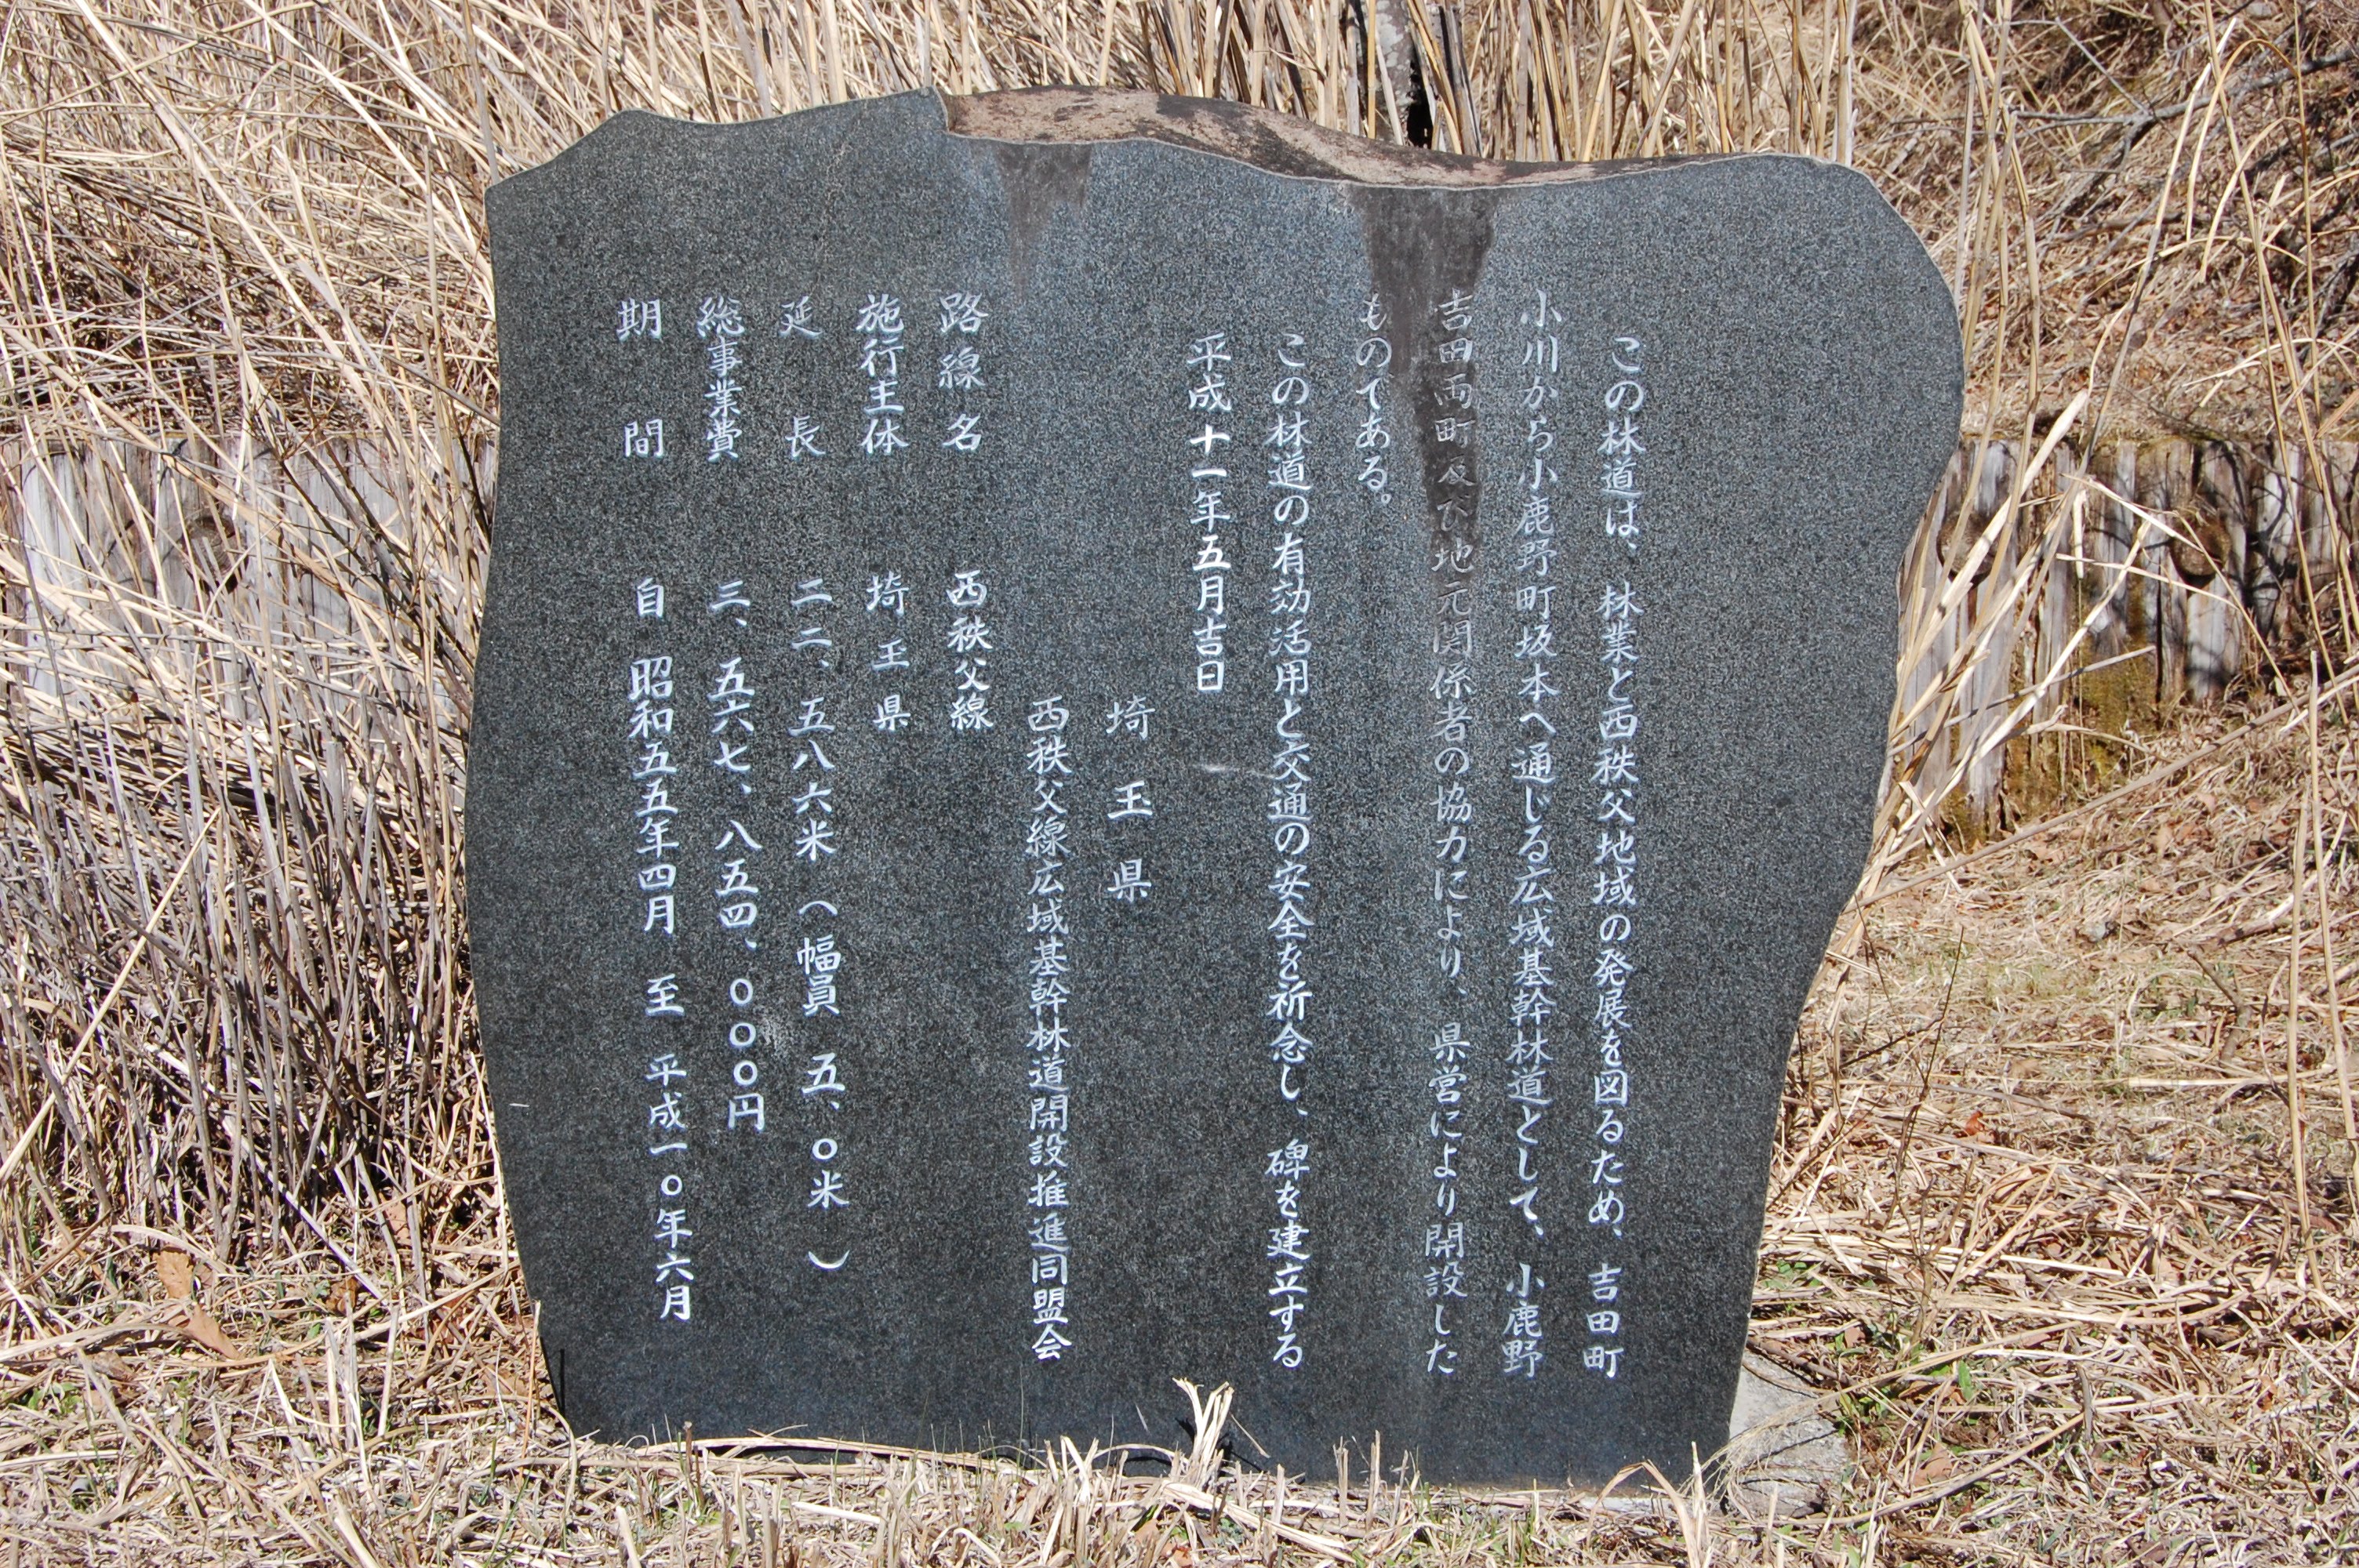 この林道は、林業と西秩父地域の発展を図るため、吉田町
小川から小鹿野町坂本へ通じる広域基幹林道として、小鹿野
吉田両町及び地元関係者の協力により、県営により開設した
ものである。
この林道の有効活用と交通の安全を祈念し、碑を建立する
平成十一年五月吉日
埼玉県
西秩父線広域基幹林道開設推進同盟会
路線名 西秩父線
施行主体 埼玉県
延長 二二、五八六米（幅員 五、〇米）
総事業費 三、五六七、八五四、〇〇〇円
期間 自 昭和五五年四月 至 平成一〇年六月